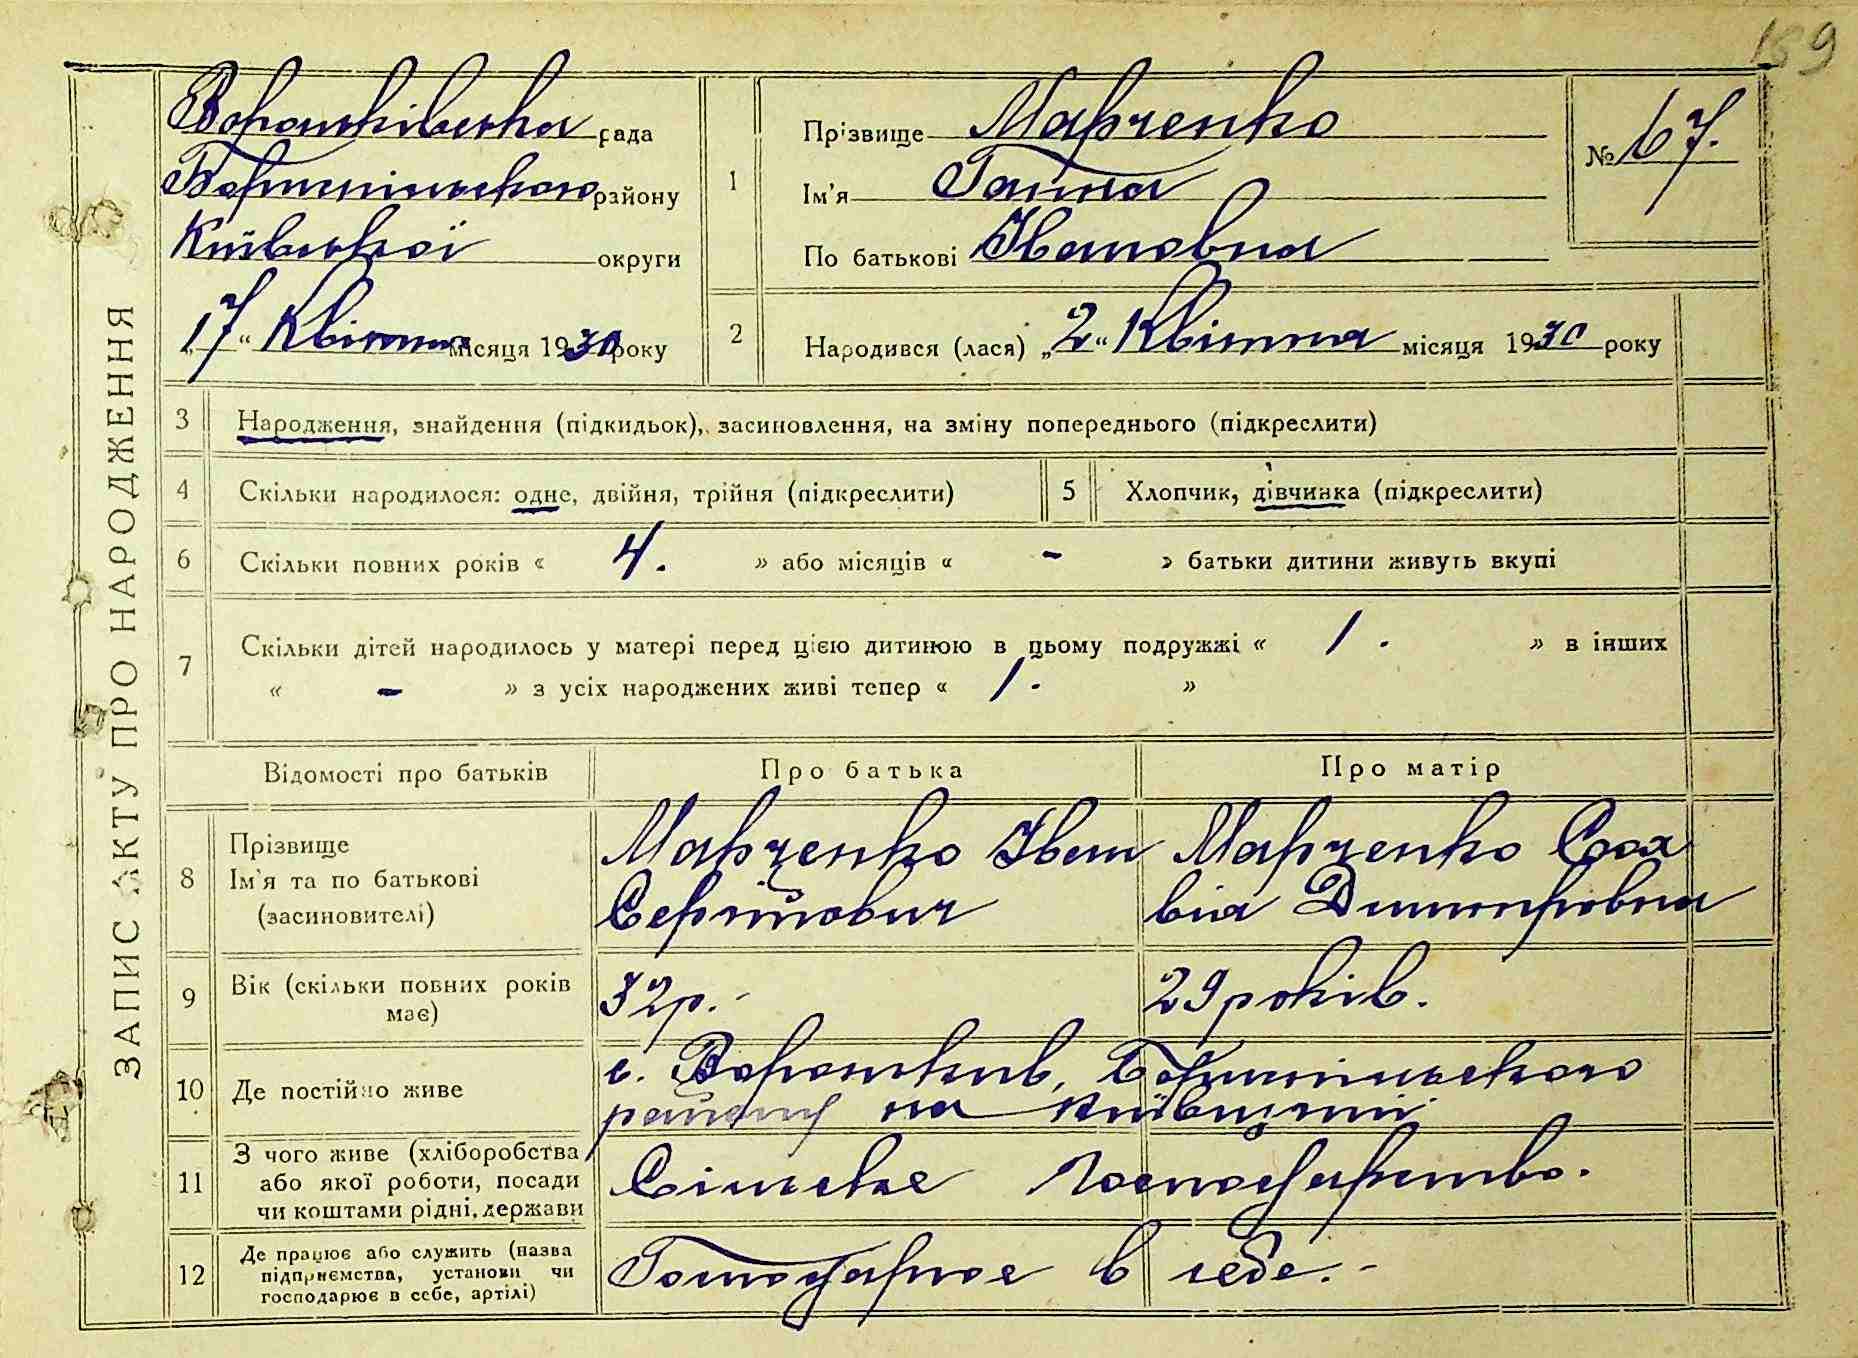 189
ЗАПИС АКТУ ПРО НАРОДЖЕННЯ
Вороньківська рада
Бориспільського району
Київської округи
„17“ Квітня місяця 1930 року
1
Прізвище Марченко
Ім’я Ганна
По батькові Івановна
№ 67.
2
Народився (лася) „2“ Квітня місяця 1930 року
3 Народження, знайдення (підкидьок), засиновлення, на зміну попереднього (підкреслити)
4 Скільки народилося: одне, двійня, трійня (підкреслити) 5 Хлопчик, дівчинка (підкреслити)
6 Скільки повних років « 4. » або місяців « - » батьки дитини живуть вкупі
7 Скільки дітей народилось у матері перед цією дитиною в цьому подружжі « 1. » в інших
« - » з усіх народжених живі тепер « 1. »
Відомості про батьків Про батька Про матір
8 Прізвище
Ім’я та по батькові
(засиновителі)
Марченко Іван
Сергійович
Марченко
вія Дмитровна
9 Вік (скільки повних років
має)
32р.-
29 років.
10 Де постійно живе
с. Вороньків, Бориспільського
району на Київщині.
11 З чого живе (хліборобства
або якої роботи, посади
чи коштами рідні, держави
Сільське господарство.
12 Де працює або служить (назва
підприємства, установи чи
господарює в себе, артілі)
Господарює в себе.-